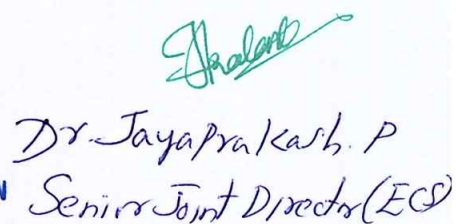 Dr. Jayaprakash. P
Senior Joint Director (ECS)